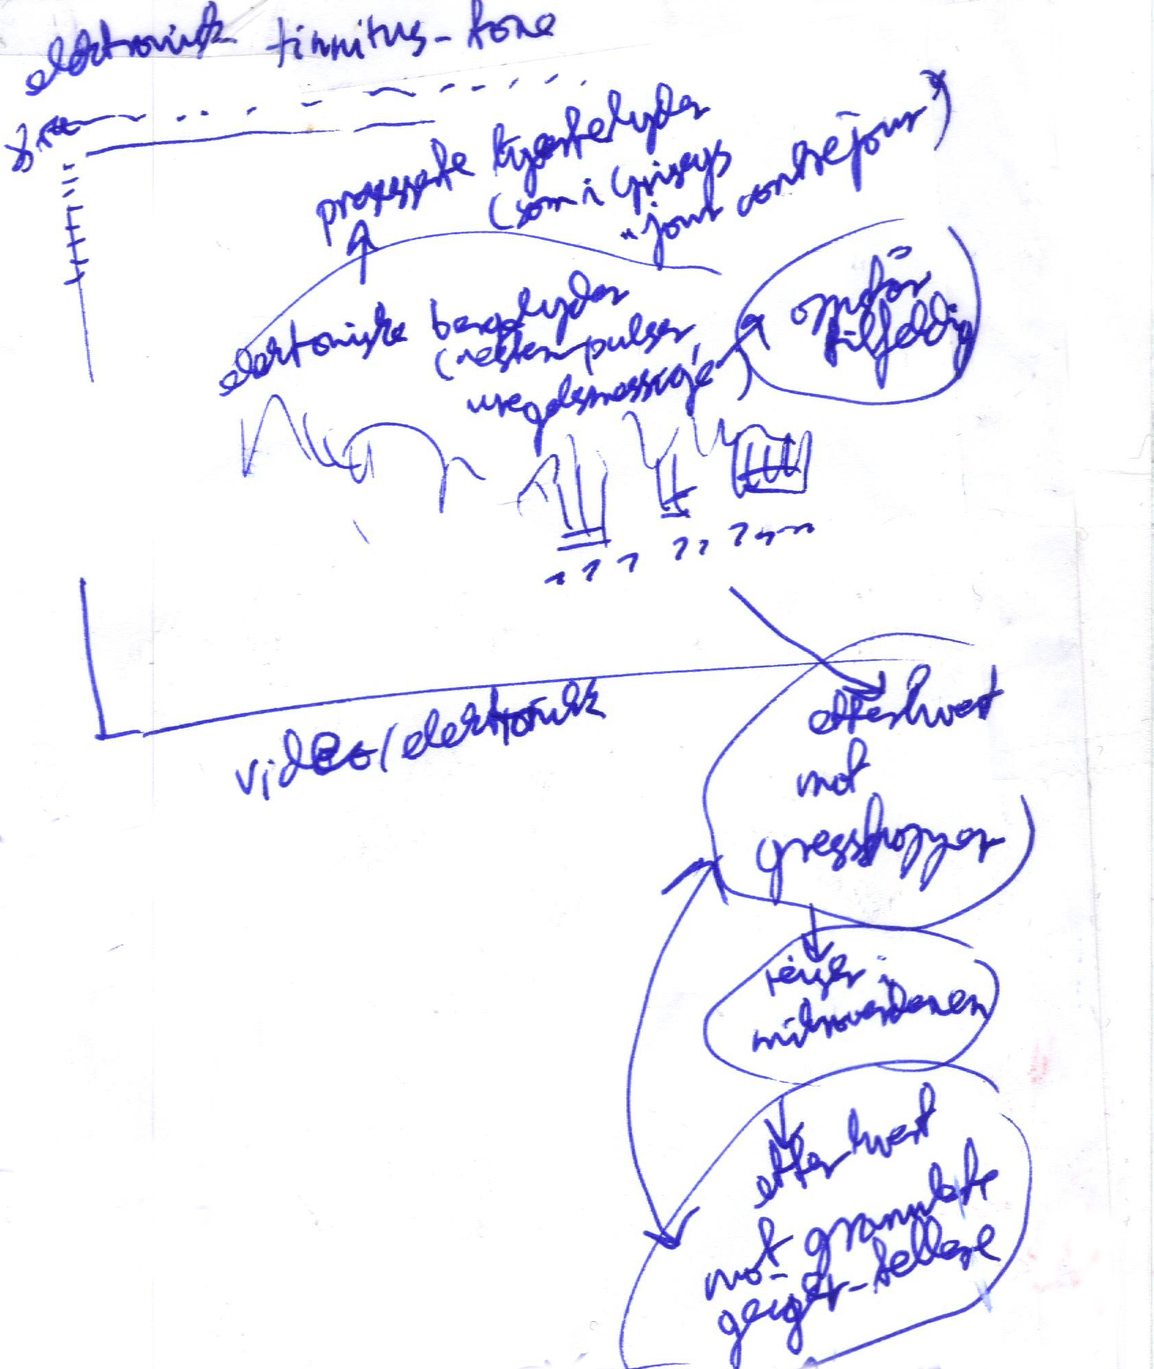 elektronisk tinnitus-tone
prosesserte hjertelyder
(som i Griseys
"jour contrejour")
elektroniske basslyder
(nesten-pulser
uregelmessige)
tilfeldig
video/elektronikk
etterhvert
mot
gresshopper
mikroverdenen
etterhvert
mot granulerte
geiger-tellere